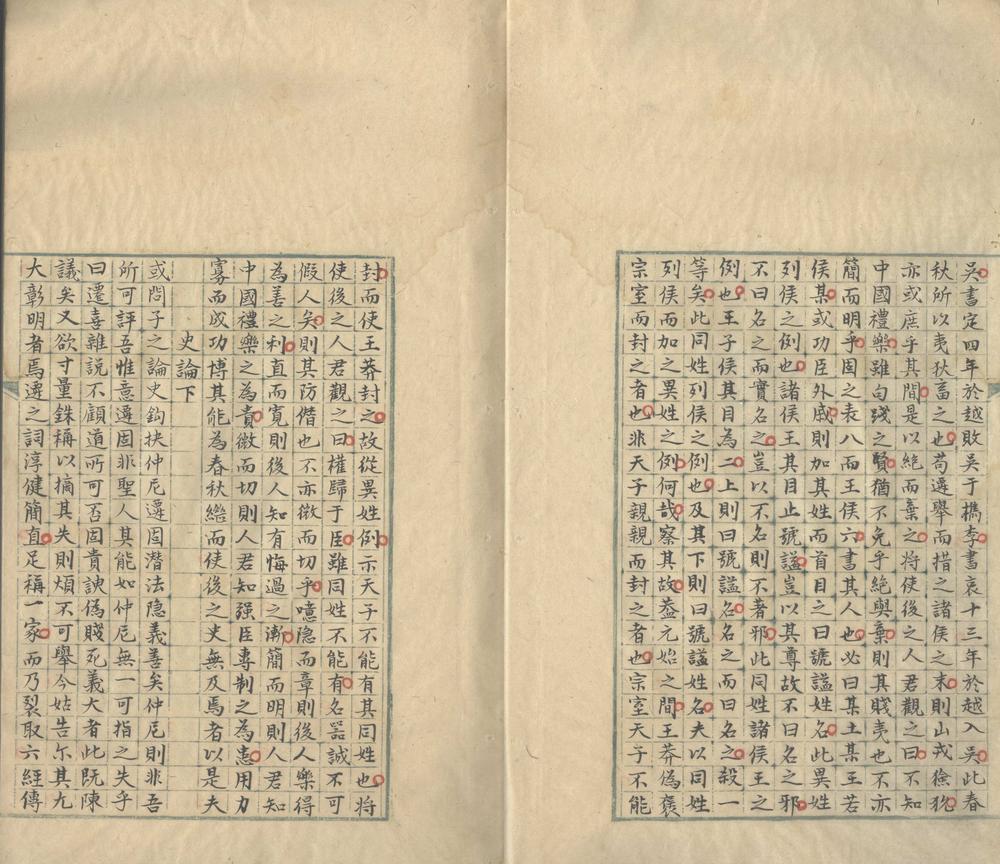 吳書定四年於越敗吳于檇李書哀十三年於越入吳此春
秋所以夷狄畜之也苟遷舉而措之諸侯之末則山戎獫狁
亦或庶乎其間是以絕而棄之將使後之人君觀之曰不知
中國禮樂雖句踐之賢猶不免乎絕與棄則其賤夷也不亦
簡而明乎固之表八而王侯六書其人也必曰某土某王若
侯某或功臣外戚則加其姓而首目之曰號謚姓名此異姓
列侯之例也諸侯王其目止號謚豈以其尊故不曰名之邪
不曰名之而實名之豈以不名則不著邪此同姓諸侯王之
例也王子侯其目為二上則曰號謚名名之而曰名之殺一
等矣此同姓列侯之例也及其下則曰號謚姓名夫以同姓
列侯而加之異姓之例何哉察其故蓋元始之間王莽偽褒
宗室而封之者也非天子親親而封之者也宗室天子不能
封而使王莽封之故從異姓例示天子不能有其同姓也將
使後之人君觀之曰權歸于臣雖同姓不能有名器誠不可
假人矣則其防僭也不亦微而切乎噫隐而章則後人樂得
為善之利直而寬則後人知有悔過之漸簡而明則人君知
中國禮樂之為貴微而切則人君知强臣專制之為患用力
寡而成功博其能為春秋繼而使後之史無及焉者以是夫
史論下
或問子之論史鈎抉仲尼遷固潛法隐義善矣仲尼則非吾
所可評吾惟意遷固非聖人其能如仲尼無一可指之失乎
曰遷喜雜說不顧道所可否固貴諛偽賤死義大者此既陳
議矣又欲寸量銖稱以摘其失則煩不可舉今姑告尔其尤
大彰明者焉遷之詞淳健簡直足稱一家而乃裂取六經傳